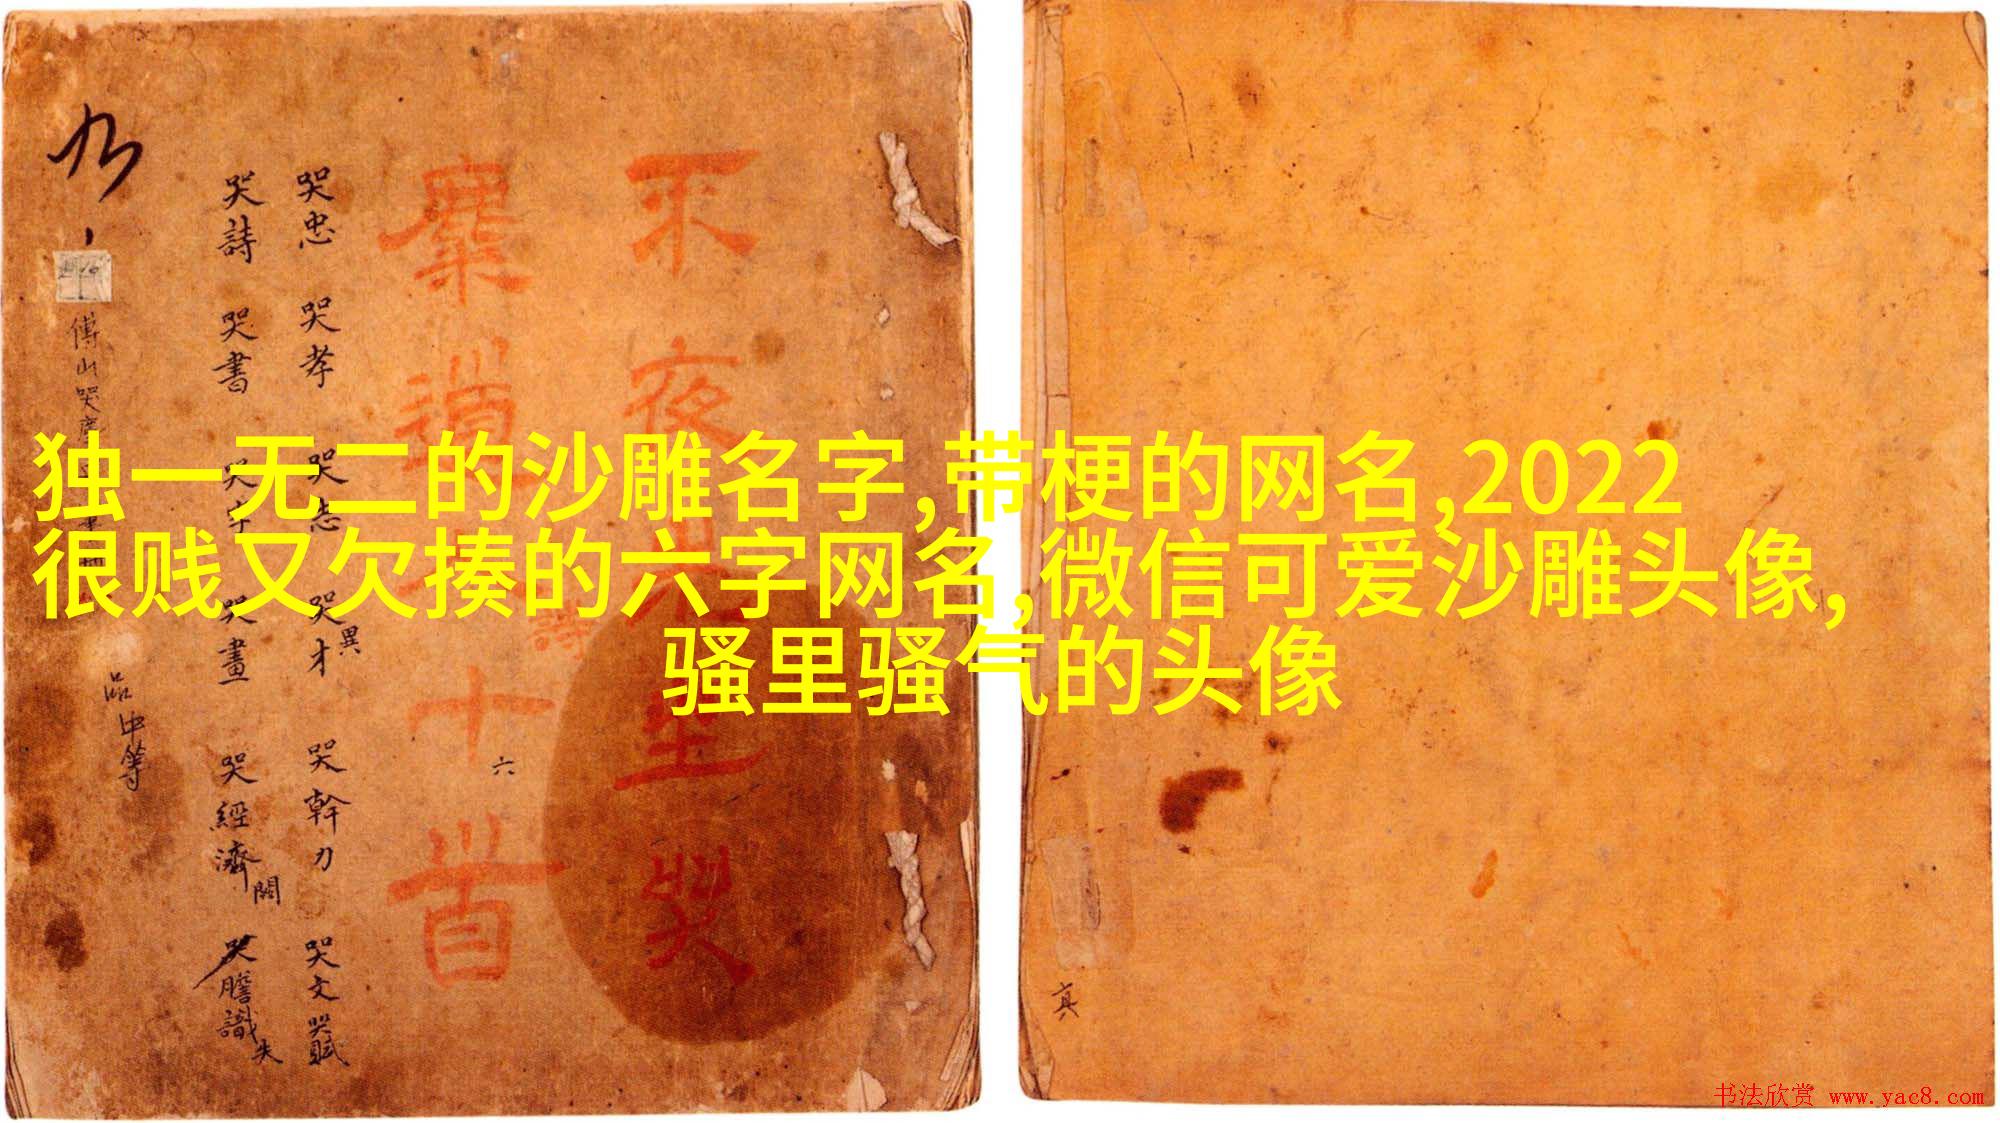 独一无二的沙雕名字,带梗的网名,2022
很贱又欠揍的六字网名,微信可爱沙雕头像,
骚里骚气的头像
哭忠 哭孝 哭志 哭才 哭幹力 哭文 哭賦
哭詩 哭書 哭字 哭畫 哭經濟 哭膽識
異
闕
失
傅山哭
品中等
不夜
十
六
詩
真
书法欣赏 www.yac8.com